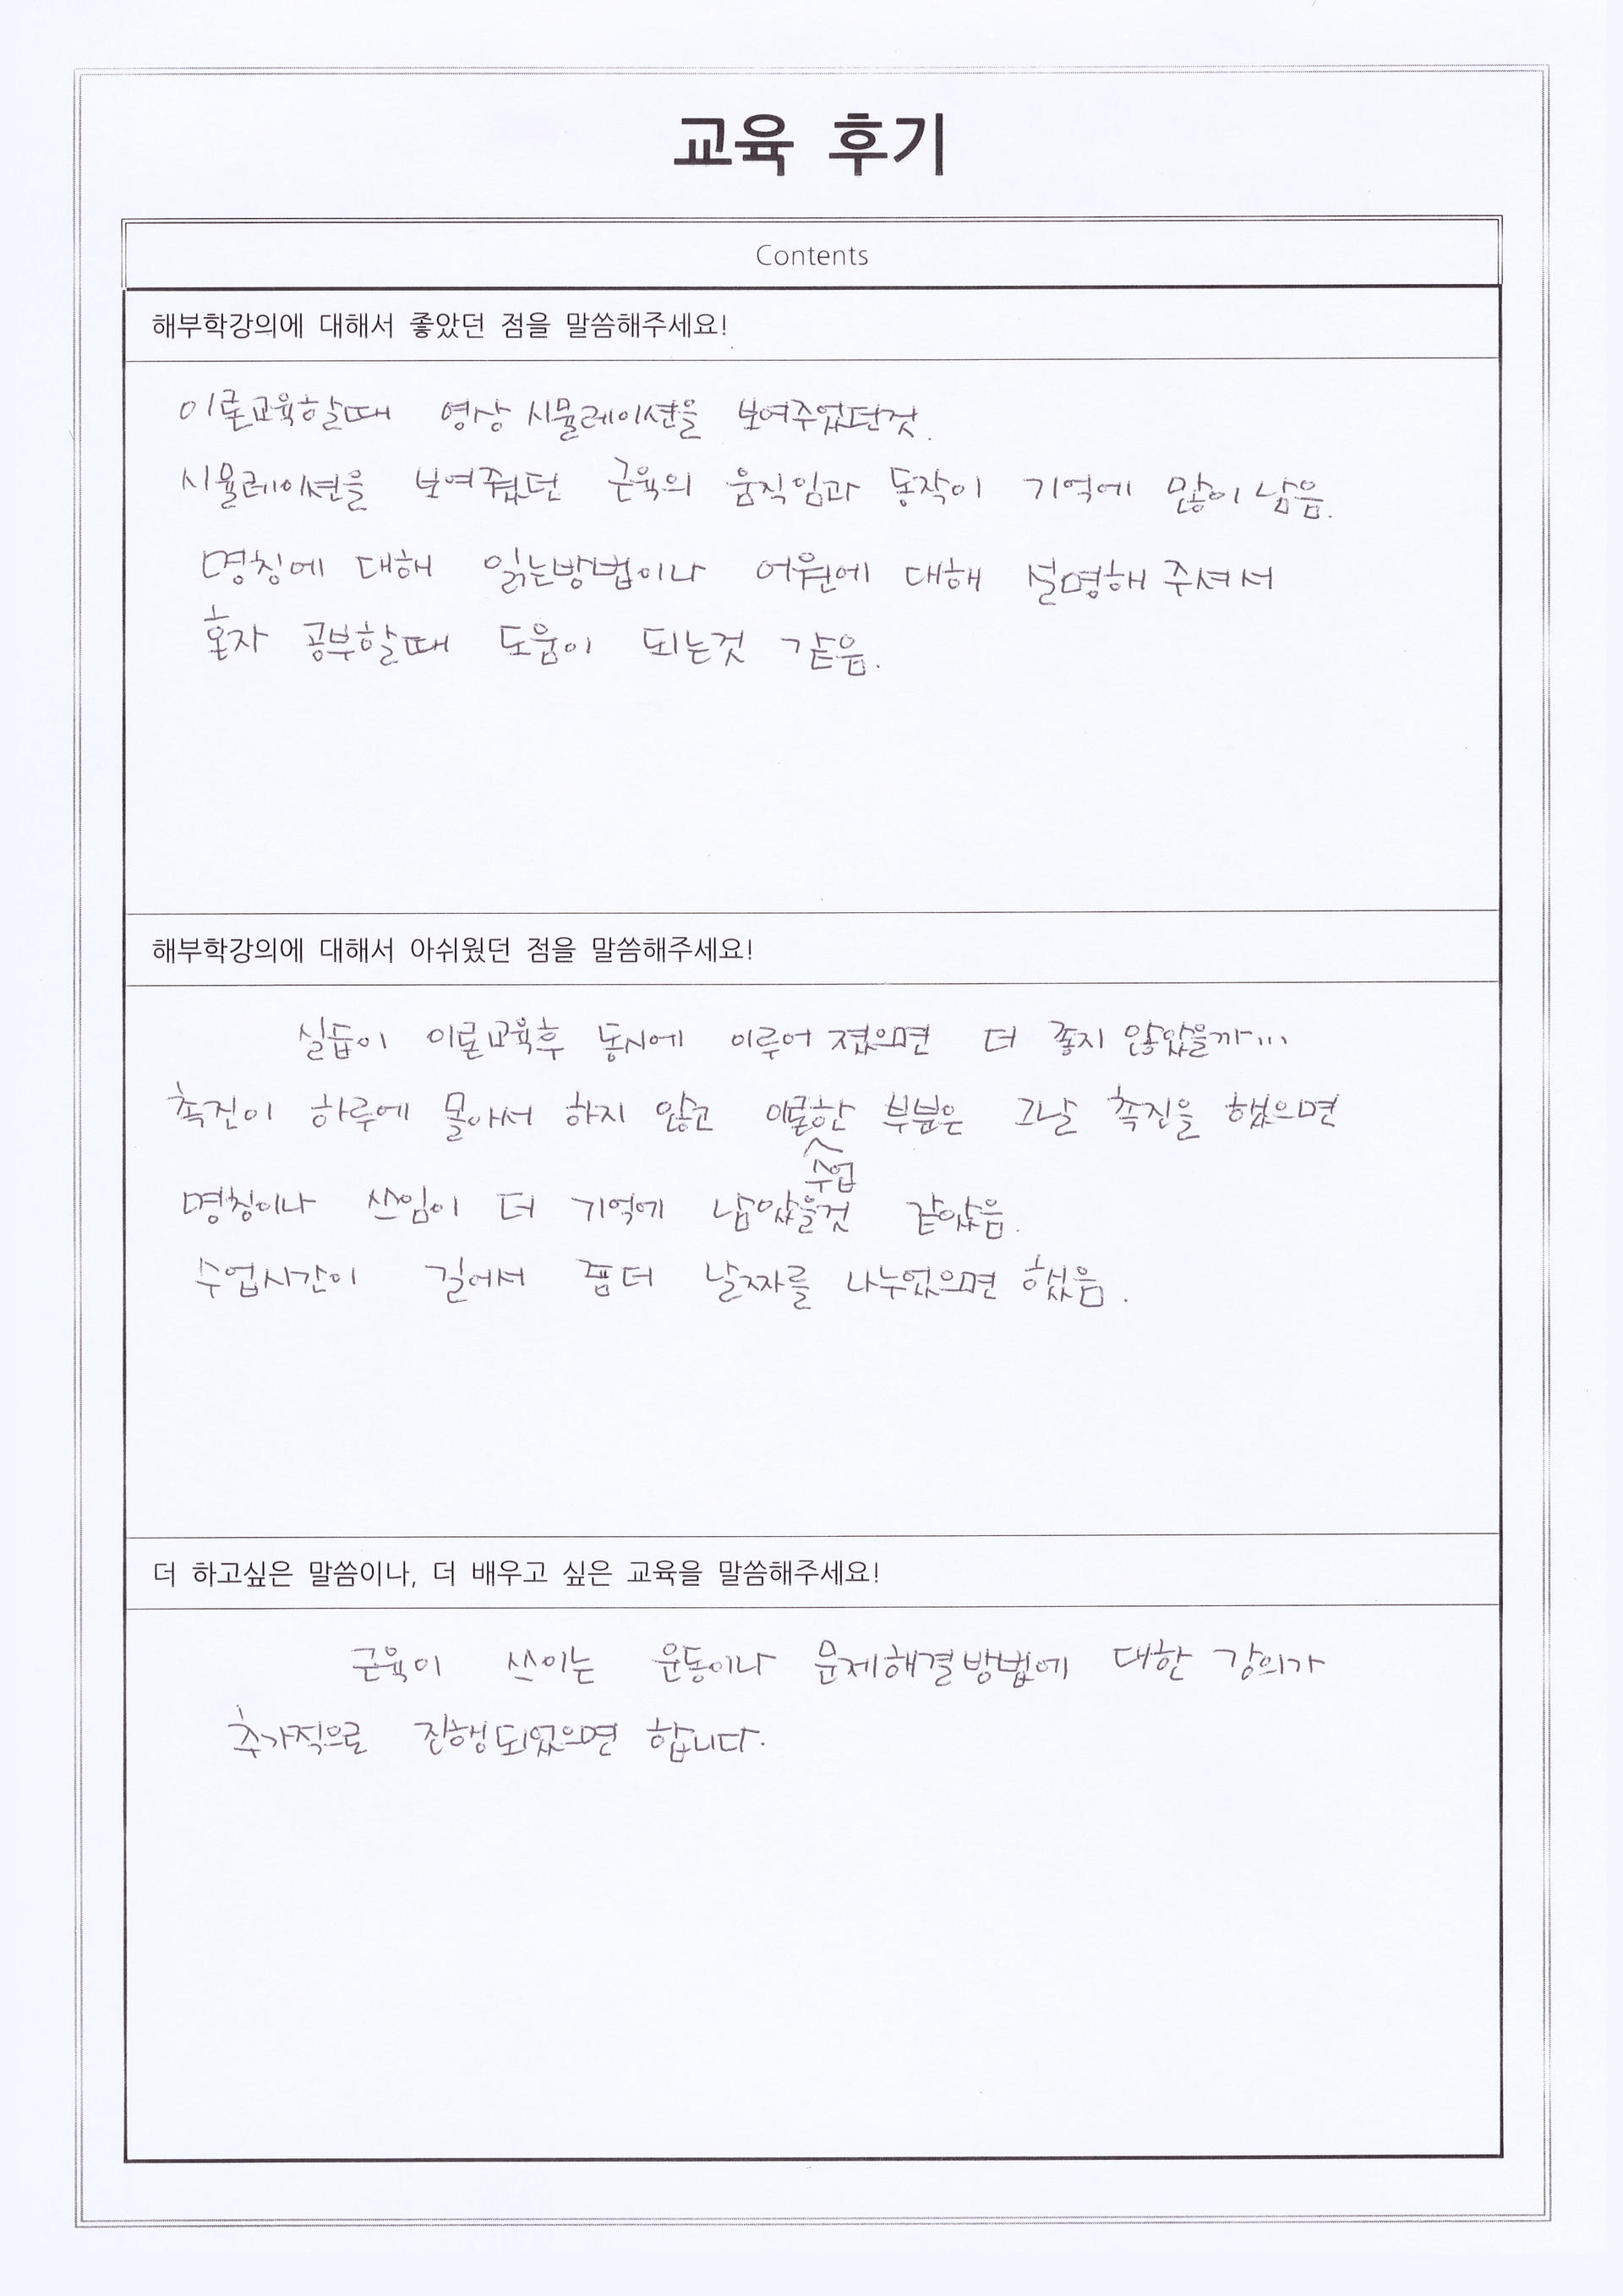 교육 후기
Contents
해부학강의에 대해서 좋았던 점을 말씀해주세요!
이론교육할때 영상 시뮬레이션을 보여주었던것.
시뮬레이션을 보여줬던 근육의 움직임과 동작이 기억에 많이 남음.
명칭에 대해 읽는방법이나 어원에 대해 설명해 주셔서
혼자 공부할때 도움이 되는것 같음.
해부학강의에 대해서 아쉬웠던 점을 말씀해주세요!
실습이 이론교육후 동시에 이루어 졌으면 더 좋지 않았을까...
촉진이 하루에 몰아서 하지 않고 이론한 부분은 그날 촉진을 했으면
수업
명칭이나 쓰임이 더 기억에 남았을것 같았음.
수업시간이 길어서 좀더 날짜를 나누었으면 했음.
더 하고싶은 말씀이나, 더 배우고 싶은 교육을 말씀해주세요!
근육이 쓰이는 운동이나 문제해결방법에 대한 강의가
추가적으로 진행되었으면 합니다.